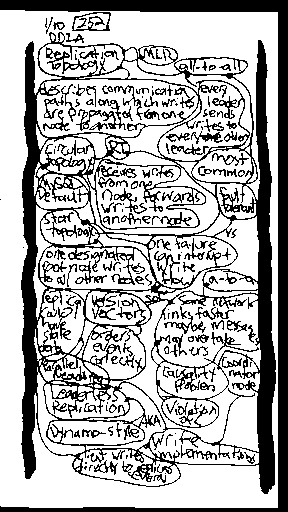 1/10 252
DDIA
Replication Topology
MLR
all-to-all
describes communication
paths along which writes
are propagated from one
node to another
every
leader
sends
writes to
every other
leader
most
common
circular
topology
MySQL
default
receives writes
from one
node, forwards
writes to
another node
fault
tolerant
vs
star
topology
one failure
can interrupt
write
flow
a-to-a
one designated
root node writes
to all other nodes
so
version
vectors
order
events
correctly
some network
links faster
maybe, messages
may overtake
others
have
stale
data
parallel
causality
problem
node
Violation
Leaderless
Replication
AKA
Dynamo-style
write
implementations
client writes
directly to